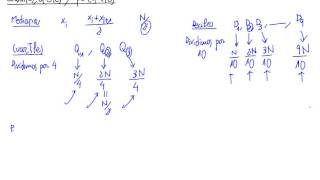 Mediana xᵢ (xᵢ+xᵢ₊₁)/2 N/2
Cuartiles Q₁, Q₂, Q₃
Dividimos por 4 N/4 2N/4 3N/4
= N/2
Deciles D₁ D₂ D₃ , — , D₉
Dividimos por 10 N/10 2N/10 3N/10 9N/10
P